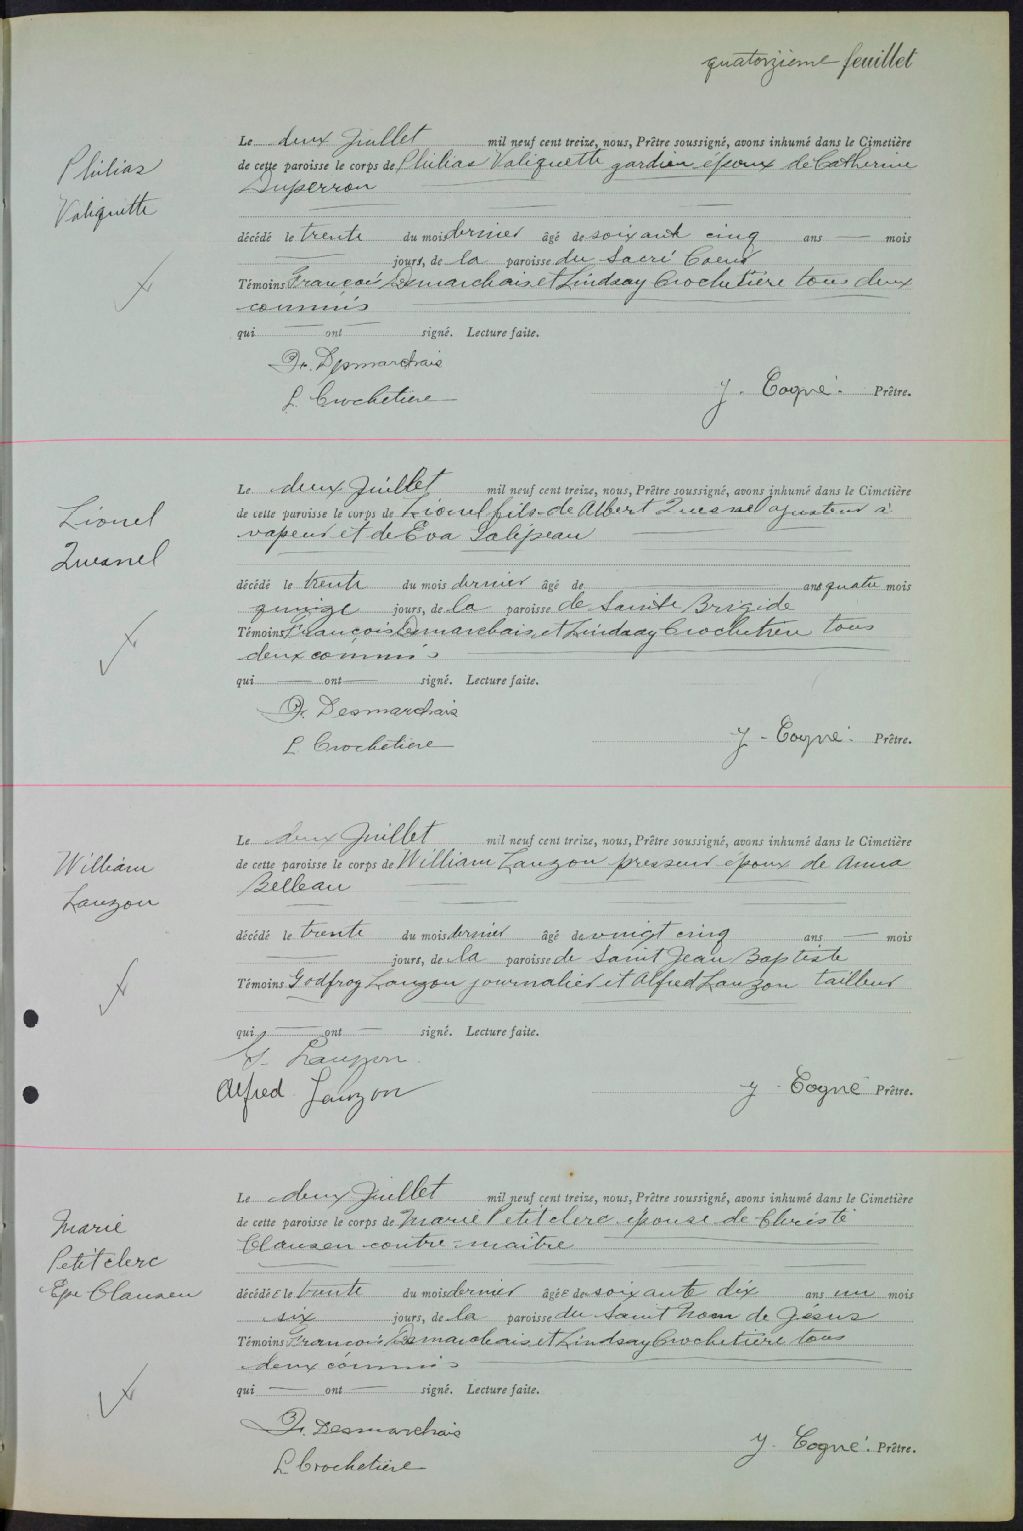 quatorzième feuillet
Philias
Valiquette
Le deux Juillet mil neuf cent treize, nous, Prêtre soussigné, avons inhumé dans le Cimetière
de cette paroisse le corps de Philias Valiquette gardien époux de Catherine
Duperron
décédé le trente du mois dernier âgé de soixante cinq ans — mois
— jours, de la paroisse du Sacré Coeur
Témoins François Desmarchais et Lindsay Crochetière tous deux
commis
qui — ont signé. Lecture faite.
Fr. Desmarchais
L. Crochetiere
J. Cogné. Prêtre.
Lionel
Quesnel
Le deux Juillet mil neuf cent treize, nous, Prêtre soussigné, avons inhumé dans le Cimetière
de cette paroisse le corps de Lionel fils de Albert Quesnel ajusteur à
vapeur et de Eva Galipeau
décédé le trente du mois dernier âgé de — ans quatre mois
quinze jours, de la paroisse de Sainte Brigide
Témoins François Desmarchais et Lindsay Crochetière tous
deux commis
qui — ont — signé. Lecture faite.
Fr. Desmarchais
L. Crochetiere
J. Cogné. Prêtre.
William
Lauzon
Le deux Juillet mil neuf cent treize, nous, Prêtre soussigné, avons inhumé dans le Cimetière
de cette paroisse le corps de William Lauzon presseur époux de Anna
Belleau
décédé le trente du mois dernier âgé de vingt cinq ans — mois
— jours, de la paroisse de Saint Jean Baptiste
Témoins Godfroy Lauzon journalier et Alfred Lauzon tailleur
qui — ont — signé. Lecture faite.
G. Lauzon.
Alfred Lauzon
J. Cogné Prêtre.
Marie
Petitclerc
Epse Clausen
Le deux Juillet mil neuf cent treize, nous, Prêtre soussigné, avons inhumé dans le Cimetière
de cette paroisse le corps de Marie Petitclerc épouse de Christe
Clausen contre-maître
décédée le trente du mois dernier âgée de soixante dix ans un mois
six jours, de la paroisse du Saint Nom de Jésus
Témoins François Desmarchais et Lindsay Crochetière tous
deux commis
qui — ont — signé. Lecture faite.
Fr. Desmarchais
L. Crochetiere
J. Cogné. Prêtre.